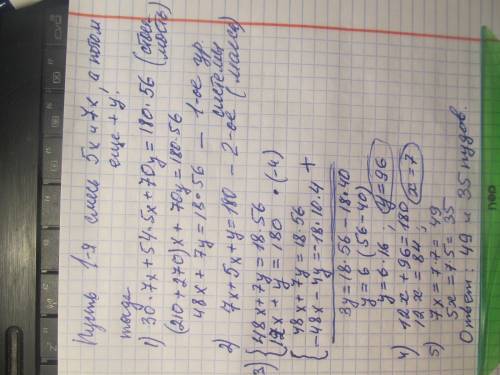 Пусть 1-я смесь 5x и 7x, а потом
еще + y.
тогда
1) 30·7x + 54·5x + 70y = 180·56 (стои-
мость)
(210 + 270)x + 70y = 180·56
48x + 7y = 18·56 — 1-ое ур.
системы
2) 7x + 5x + y = 180 — 2-ое (масса)
3) { 48x + 7y = 18·56
12x + y = 180 · (-4)
{ 48x + 7y = 18·56
-48x - 4y = -18·10·4 +
3y = 18·56 - 18·40
y = 6 (56 - 40)
y = 6·16, y = 96
4) 12x + 96 = 180
12x = 84, x = 7
5) 7x = 7·7 = 49
5x = 7·5 = 35
Ответ: 49 и 35 пудов.